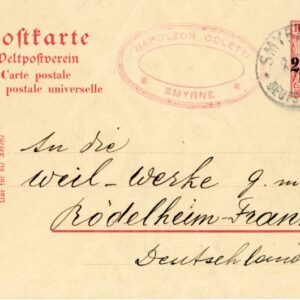 ostkarte
Weltpostverein
Carte postale
postale universelle
NAPOLEON COLETTI
SMYRNE
SMYR
2
An die
Weil-Werke g. m
Rödelheim-Fran
Deutschland
Nur für die Adresse